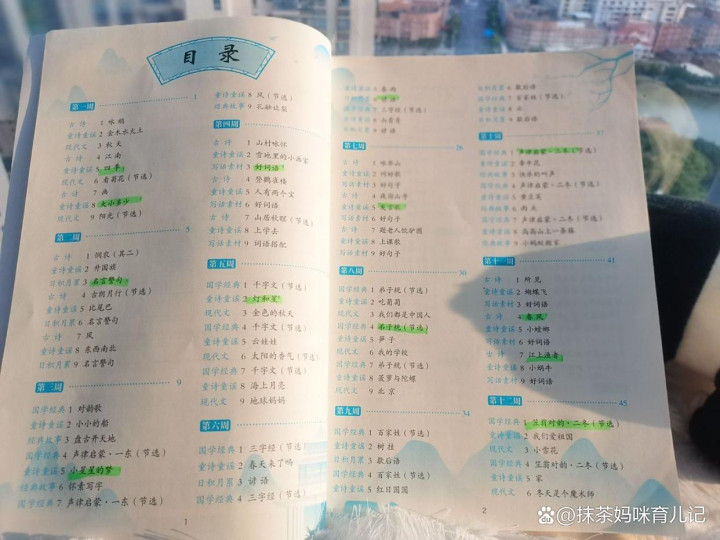 目录
第一周 1
古诗 1 咏鹅
童诗童谣 2 金木水火土
现代文 3 秋天
古诗 4 江南
童诗童谣 5 四季
现代文 6 看菊花（节选）
古诗 7 画
童诗童谣 8 大小多少
现代文 9 阳光（节选）
第二周 5
古诗 1 悯农（其二）
童诗童谣 2 外国话
日积月累 3 名言警句
古诗 4 古朗月行（节选）
童诗童谣 5 比尾巴
日积月累 6 名言警句
古诗 7 风
童诗童谣 8 东西南北
日积月累 9 名言警句
第三周 9
国学经典 1 对韵歌
童诗童谣 2 小小的船
经典故事 3 盘古开天地
国学经典 4 声律启蒙·一东（节选）
童诗童谣 5 小星星的梦
经典故事 6 怀素写字
国学经典 7 声律启蒙·一东（节选）
童诗童谣 8 风（节选）
经典故事 9 孔融让梨
第四周
古诗 1 山村咏怀
童诗童谣 2 雪地里的小画家
写话素材 3 好词语
古诗 4 登鹳雀楼
童诗童谣 5 人有两个宝
写话素材 6 好词语
古诗 7 山居秋暝（节选）
童诗童谣 8 上学去
写话素材 9 词语搭配
第五周
国学经典 1 千字文（节选）
童诗童谣 2 灯和星
现代文 3 金色的秋天
国学经典 4 千字文（节选）
童诗童谣 5 云娃娃
现代文 6 太阳的香气（节选）
国学经典 7 千字文（节选）
童诗童谣 8 海上月亮
现代文 9 地球妈妈
第六周
国学经典 1 三字经（节选）
童诗童谣 2 春天来了吗
日积月累 3 谚语
国学经典 4 三字经（节选）
1
谚语
三字经（节选）
谚语
第七周 26
古诗
童诗童谣 2 问好歌
写话素材 3 好句子
古诗
童诗童谣 5
写话素材 6 好句子
古诗 7 题老人饮炉图
童诗童谣 8 上课歌
写话素材 9 好句子
第八周 30
国学经典 1 弟子规（节选）
童诗童谣 2 吃葡萄
现代文 3 我们都是中国人
国学经典 4 弟子规（节选）
童诗童谣 5 笋子
现代文 6 我的学校
国学经典 7 弟子规（节选）
童诗童谣 8 菠萝与陀螺
现代文 9 北京
第九周 34
国学经典 1 百家姓（节选）
童诗童谣 2 树
日积月累 3 歇后语
国学经典 4 百家姓（节选）
童诗童谣 5 红日圆圆
日积月累 6 歇后语
国学经典 7 百家姓（节选）
童诗童谣 8
日积月累 9 歇后语
第十周 37
国学经典 1 声律启蒙·二冬（节选）
童诗童谣 2 春牛花
经典故事 3 快乐的叫声
国学经典 4 声律启蒙·二冬（节选）
童诗童谣 5
经典故事 6
国学经典 7 声律启蒙·二冬（节选）
童诗童谣 8 高高山上一条藤
经典故事 9 小蚂蚁搬家
第十一周 41
古诗 1 所见
童诗童谣 2 蝴蝶飞
写话素材 3 好词语
古诗 4 春风
童诗童谣 5 小螳螂
写话素材 6 好词语
古诗 7 江上渔者
童诗童谣 8 小蜗牛
写话素材 9 好词语
第十二周 45
国学经典 1 笠翁对韵·二冬（节选）
童诗童谣 2 我们爱祖国
现代文 3 小雪花
国学经典 4 笠翁对韵·二冬（节选）
童诗童谣 5 家
现代文 6 冬天是个魔术师
2
@抹茶妈咪育儿记